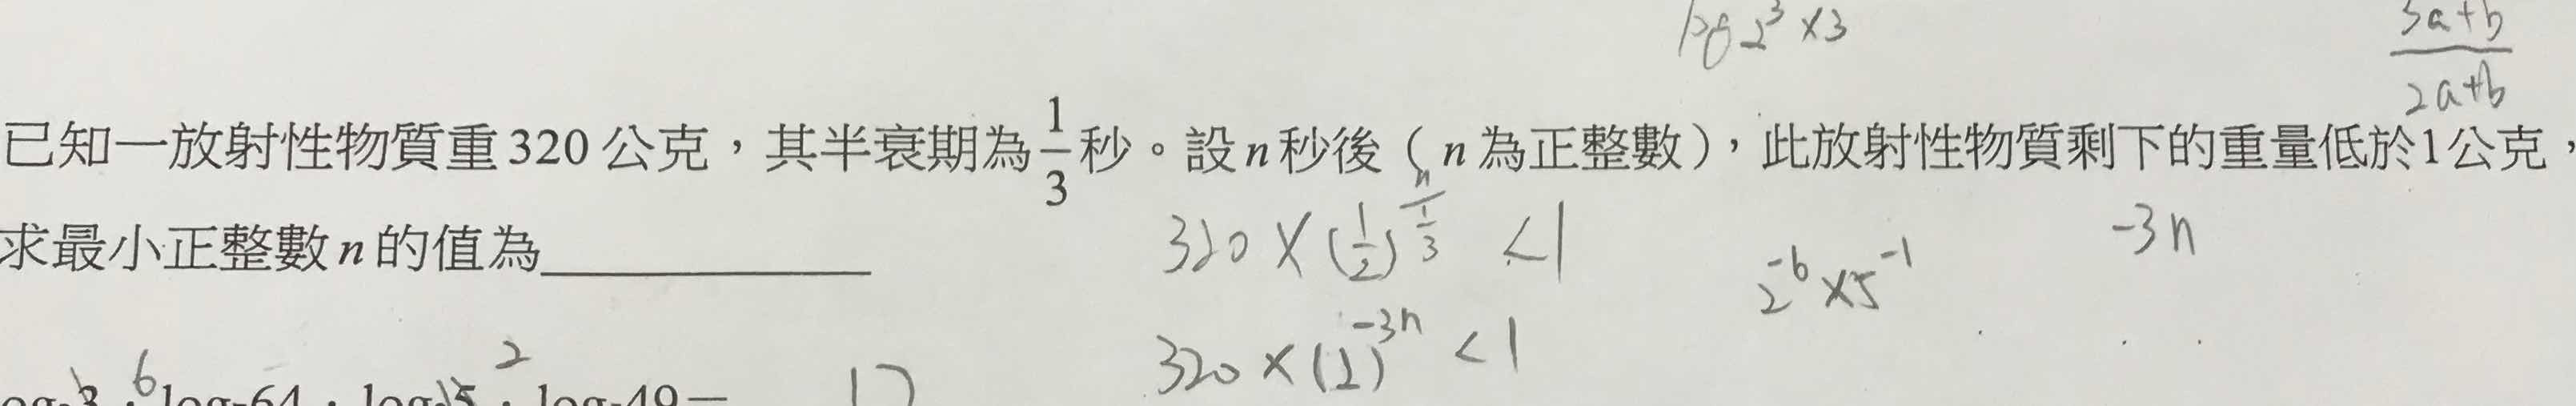 log 2³ × 3
3a+b
2a+b
已知一放射性物質重320公克，其半衰期為1/3秒。設n秒後（n為正整數），此放射性物質剩下的重量低於1公克，
求最小正整數n的值為
320 × (1/2)^(n/(1/3)) < 1
-3n
2⁻⁶ × 5⁻¹
320 × (2)⁻³ⁿ < 1
6
2